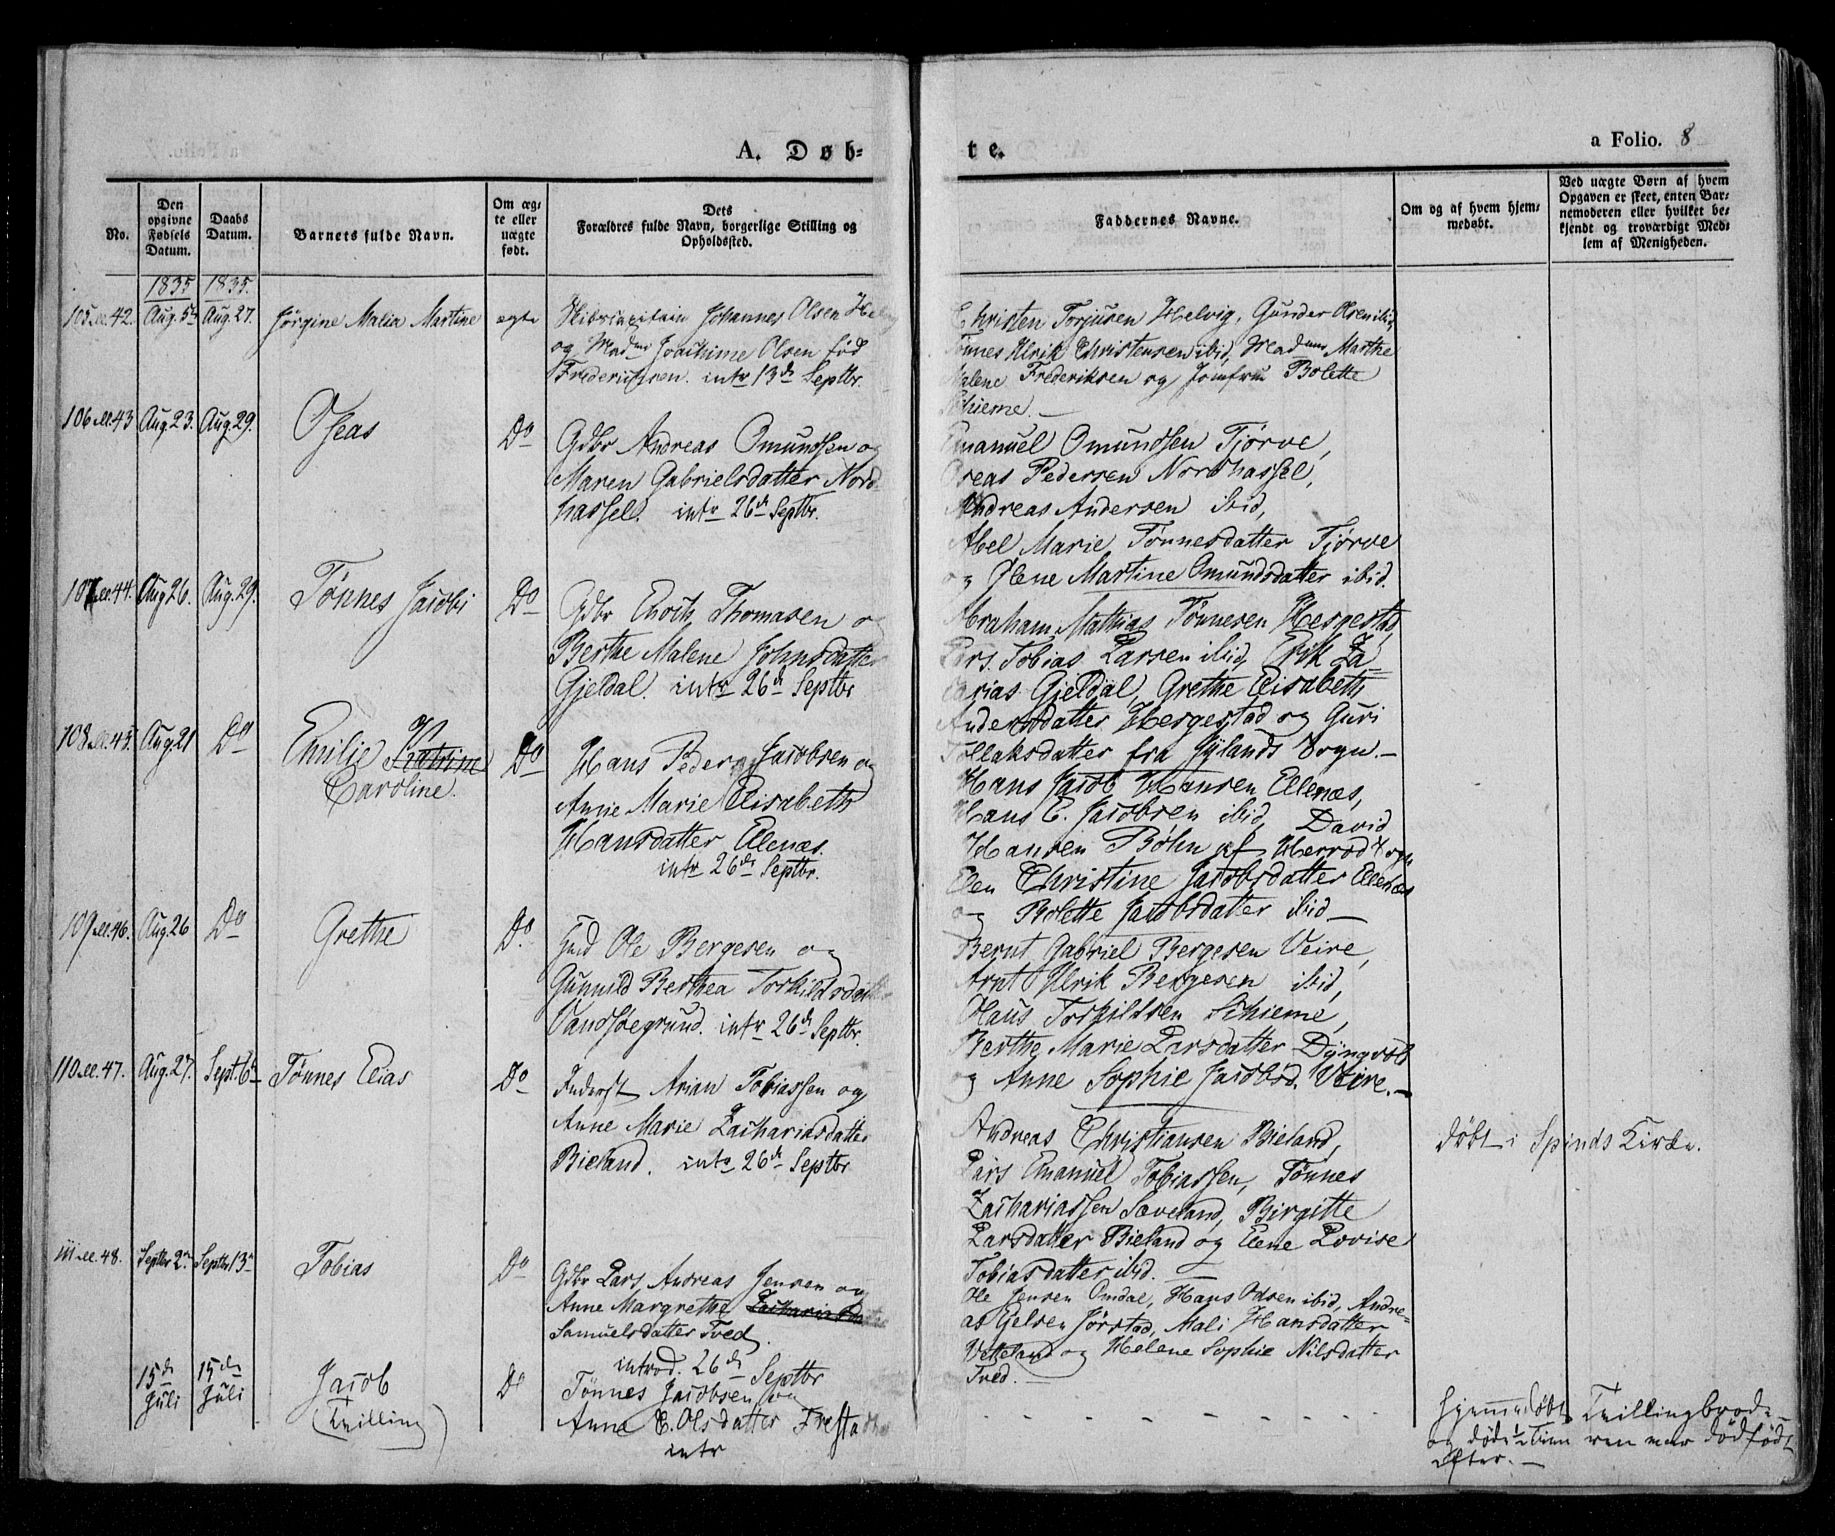 A. Døb-
No.
Den opgivne Fødsels Datum.
Daabs Datum.
Barnets fulde Navn.
Om ægte eller uægte født.
Dets Forældres fulde Navn, borgerlige Stilling og Opholdssted.
1835 1835.
105 42. Aug. 5te Aug. 27. Jørgine Malia Martine ægte
Johannes Olsen
og Madme Joachime Olsen fød
Frederichsen. intr 13de Septbr.
106 43 Aug 23. Aug. 29. Oseas Do
Gdbr Andreas Omundsen og
Maren Gabrielsdatter Nord-
hassel. intr 26de Septbr.
107 44. Aug 26. Aug. 29. Tønnes Jacob Do
Gdbr Enoch Thomasen og
Berthe Malene Johnsdatter
Gjeldal. intr 26de Septbr
108 45. Aug. 21 Do Emilie
Caroline. Do
Hans Peder Jacobsen og
Anne Marie Elisabeth
Hansdatter Ellenæs.
intr 26de Septbr.
109 46. Aug. 26 Do Grethe Do.
Ole Bergesen og
Gunnild Berthea Torkildsdatter
Vandsøegrund. intr 26de Septbr.
110 47. Aug. 27. Septr. 6te Tønnes Elias Do
Inderst Arian Tobiassen og
Anne Marie Zachariasdatter
Bieland. intr 26de Septbr
111 48. Septbr 2n Septbr 13n Tobias Do
Gdbr Lars Andreas Jensen og
Anne Margrethe
Samuelsdatter Tved.
introd. 26de Septbr
15de Juli 15de Juli Jacob (Tvilling) Do
Tønnes Jacobsen og
Anne E. Olsdatter Frestad
intr
te.
a Folio. 8
Faddernes Navne.
Om og af hvem hjemmedøbt.
Ved uægte Børn af hvem Opgaven er skeet, enten Barnemoderen eller hvilket bekjendt og troværdigt Medlem af Menigheden.
Christen Torjusen Helvig, Gunder Olsen ibid,
Tønnes Ulrik Christensen ibid, Madame Marthe
Malene Frederiksen og Jomfru Bolette
Schieme.
Emanuel Omundsen Tjørve,
Oreas Pedersen Nordhassel,
Andreas Andersen ibid,
Abel Marie Tønnesdatter Tjørve
og Olene Martine Omundsdatter ibid.
Abraham Mathias Tønnesen Hergestad,
Lars Tobias Larsen ibid, Erik Za-
carias Gjeldal, Grethe Elisabeth
Andersdatter Hergestad og Guri
Tollaksdatter fra Gylands Sogn.
Hans Jacob Hansen Ellenæs,
Hans E. Jacobsen ibid, David
Hansen Bøhn af Herred Sogn
Elen Christine Jacobsdatter Ellenæs
og Bolette Jacobsdatter ibid
Bernt Gabriel Bergesen Veire,
Arnt Ulrik Bergesen ibid,
Olaus Torkildsen Schieme,
Berthe Marie Larsdatter Dyngvold
og Anne Sophie Jacobsd. Veire.
Andreas Christiansen Bieland,
Lars Emanuel Tobiassen, Tønnes
Zachariassen Sæveland, Birgitte
Larsdatter Bieland og Elene Lovise
Tobiasdatter ibid.
døbt i Spinds Kirke.
Ole Jensen Omdal, Hans Olsen ibid, Andre-
as Gjelsen Jørstad, Mali Hansdatter
Vetteland og Helene Sophie Nilsdatter
Tved.
hjemmedøbt og døde Time efter.
Tvillingbrode-
ren var dødfødt